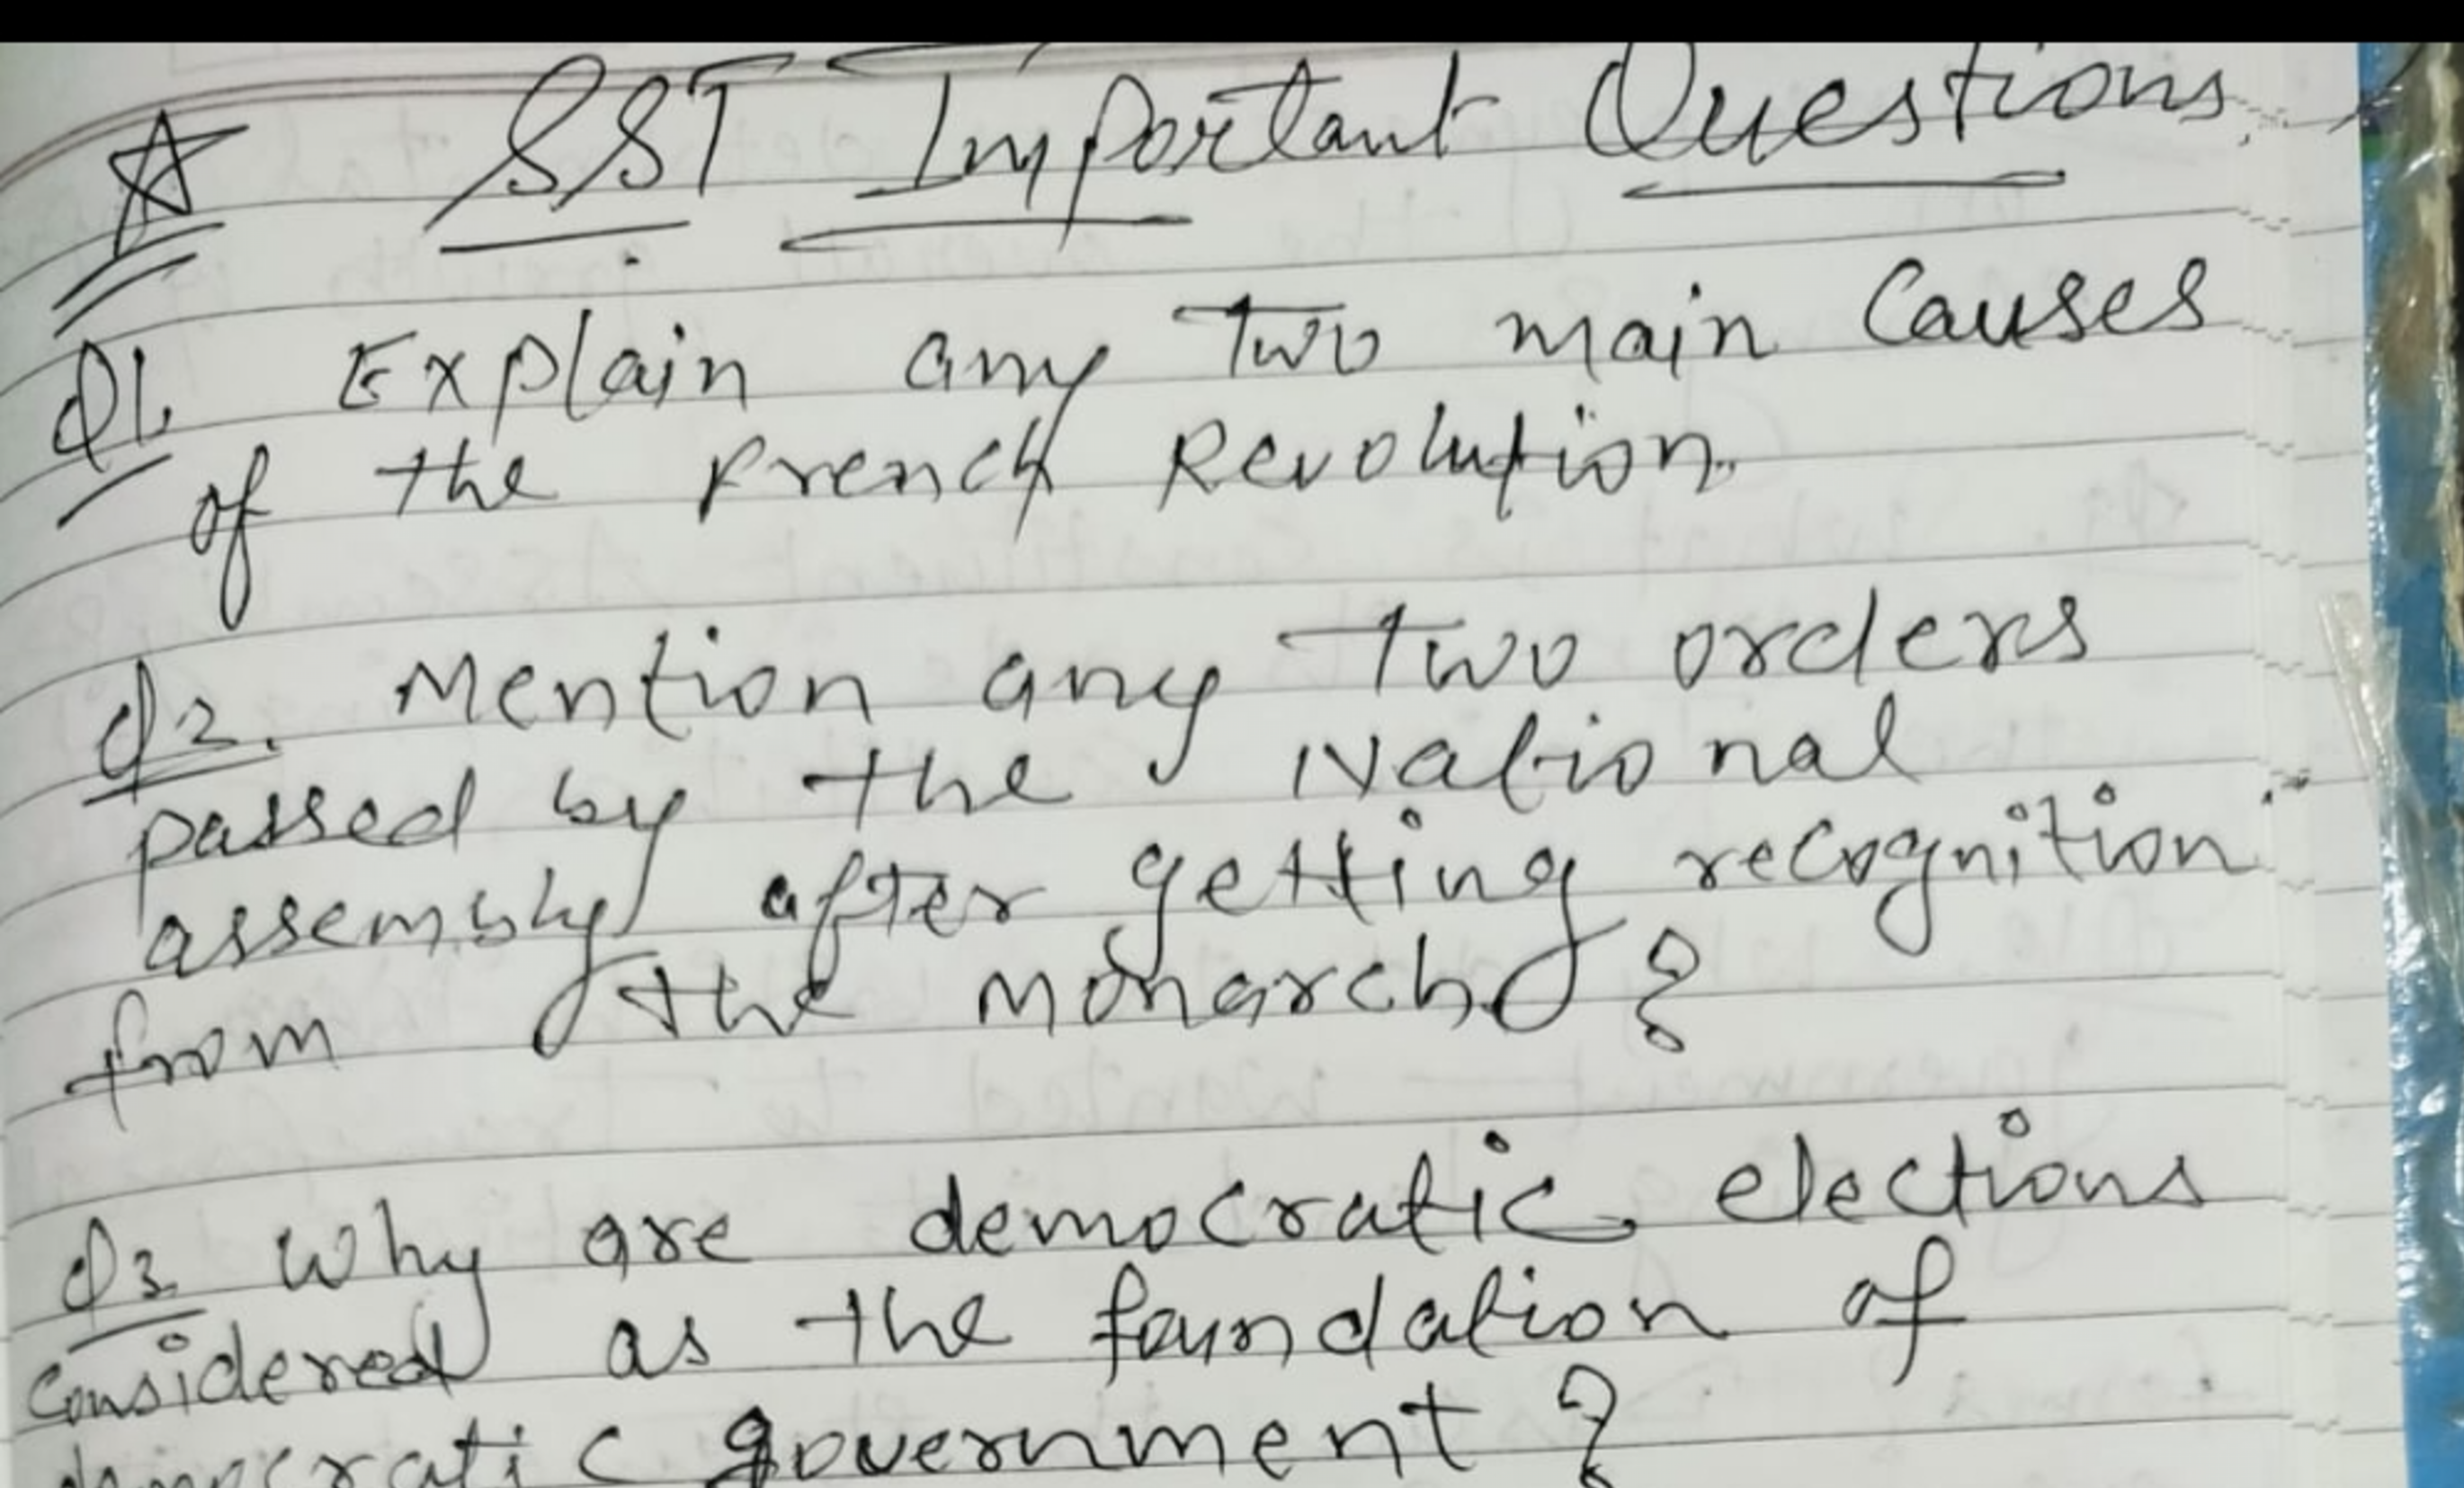 SST Important Questions
Q1. Explain any Two main Causes
of the French Revolution.
Q2. Mention any Two orders
passed by the National
assembly after getting recognition
from the monarch?
Q3. Why are democratic elections
considered as the foundation of
democratic government?